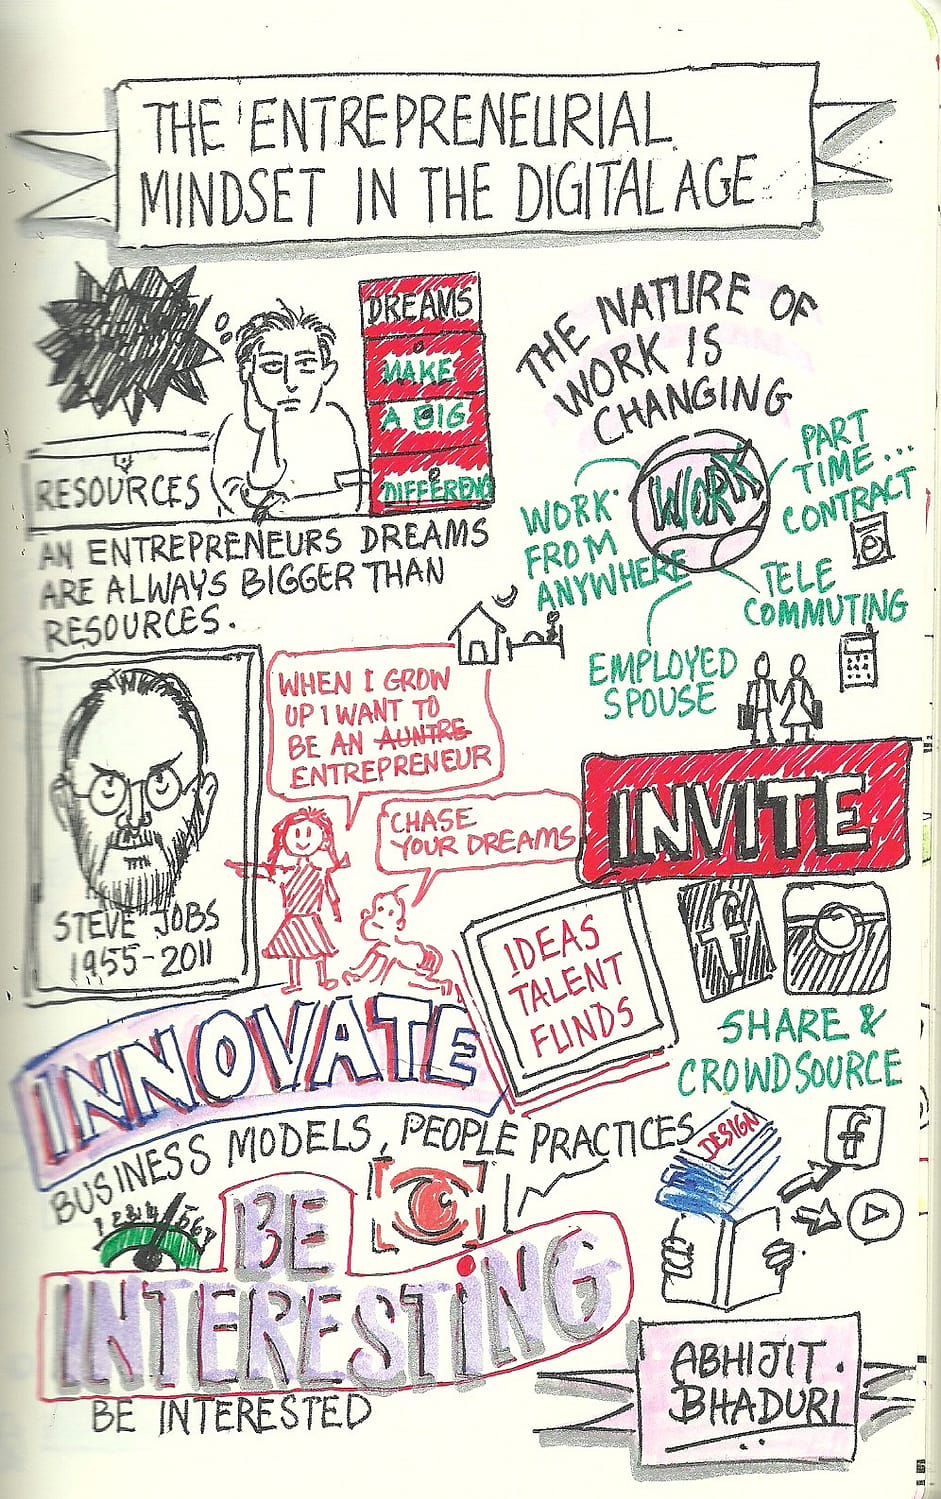 THE ENTREPRENEURIAL
MINDSET IN THE DIGITAL AGE
DREAMS
MAKE
A BIG
DIFFERENC
RESOURCES
AN ENTREPRENEURS DREAMS
ARE ALWAYS BIGGER THAN
RESOURCES.
THE NATURE OF
WORK IS
CHANGING
WORK
PART
TIME...
CONTRACT
WORK
FROM
ANYWHERE
TELE
COMMUTING
EMPLOYED
SPOUSE
e
STEVE JOBS
1955-2011
WHEN I GROW
UP I WANT TO
BE AN AUNTRE
ENTREPRENEUR
CHASE
YOUR DREAMS
INVITE
IDEAS
TALENT
FUNDS
f
SHARE &
CROWDSOURCE
INNOVATE
BUSINESS MODELS, PEOPLE PRACTICES
DESIGN
f
BE
INTERESTING
BE INTERESTED
ABHIJIT
BHADURI